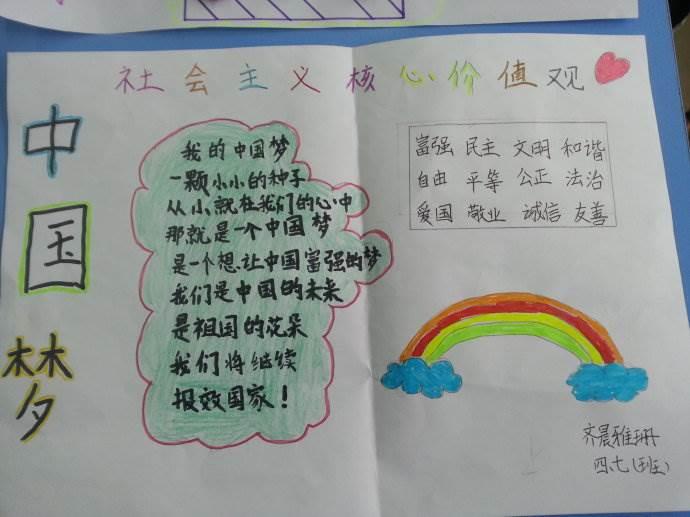 社会主义核心价值观
中
国
梦
我的中国梦
一颗小小的种子
从小就在我们的心中
那就是一个中国梦
是一个想让中国富强的梦
我们是中国的未来
是祖国的花朵
我们将继续
报效国家！
富强 民主 文明 和谐
自由 平等 公正 法治
爱国 敬业 诚信 友善
齐晨雅珊
四.七(班)